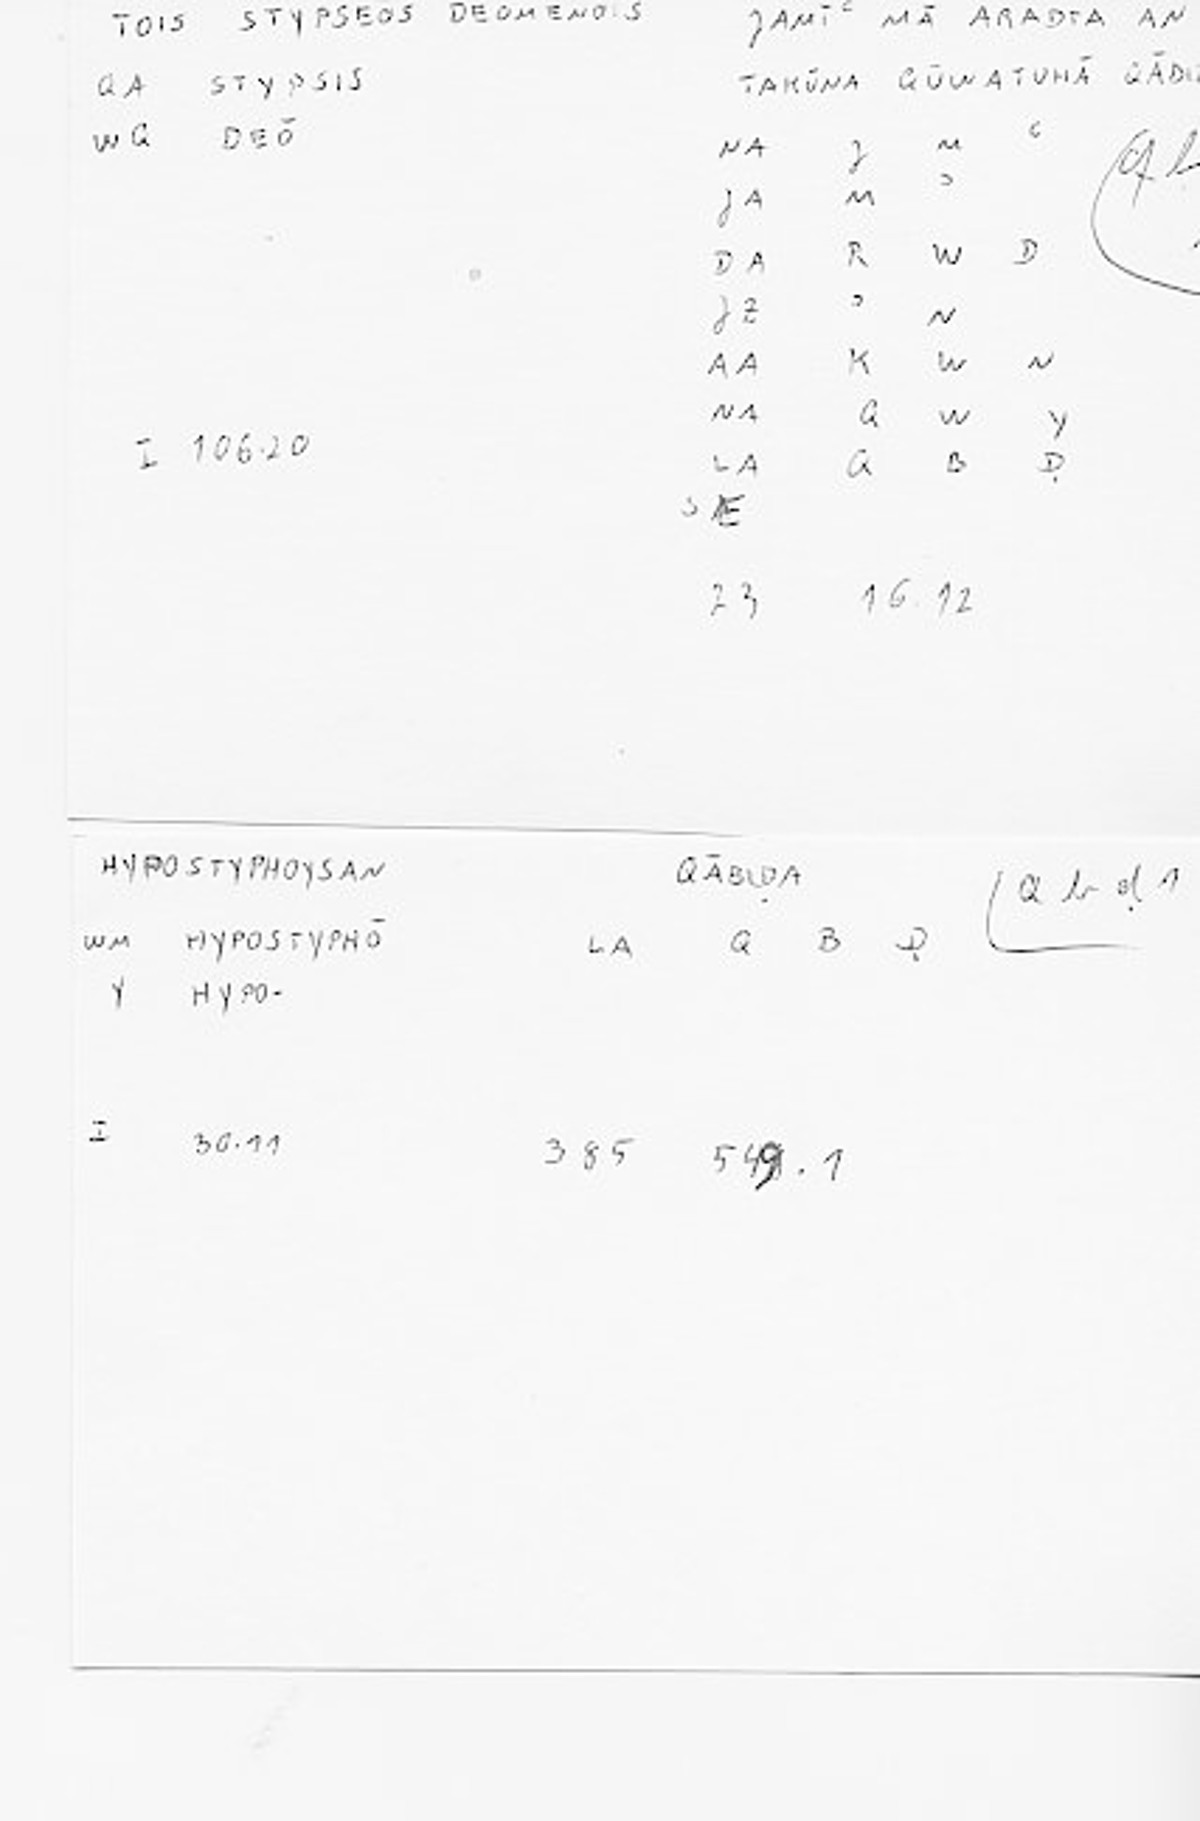 TOIS STYPSEOS DEOMENOIS
QA STYPSIS
WQ DEŌ
I 106.20
ǦAMĪʿ MĀ ARADTA AN
TAKŪNA QŪWATUHĀ
NA ǧ M ʿ
ǧA M ʾ
DA R W D
ǧZ ʾ N
AA K W N
NA Q W Y
LA Q B Ḍ
23 16.12
HYPOSTYPHOYSAN
WM HYPOSTYPHŌ
Y HYPO-
I 36.11
QĀBIḌA
LA Q B Ḍ
Q b ḍ 1
385 549.1